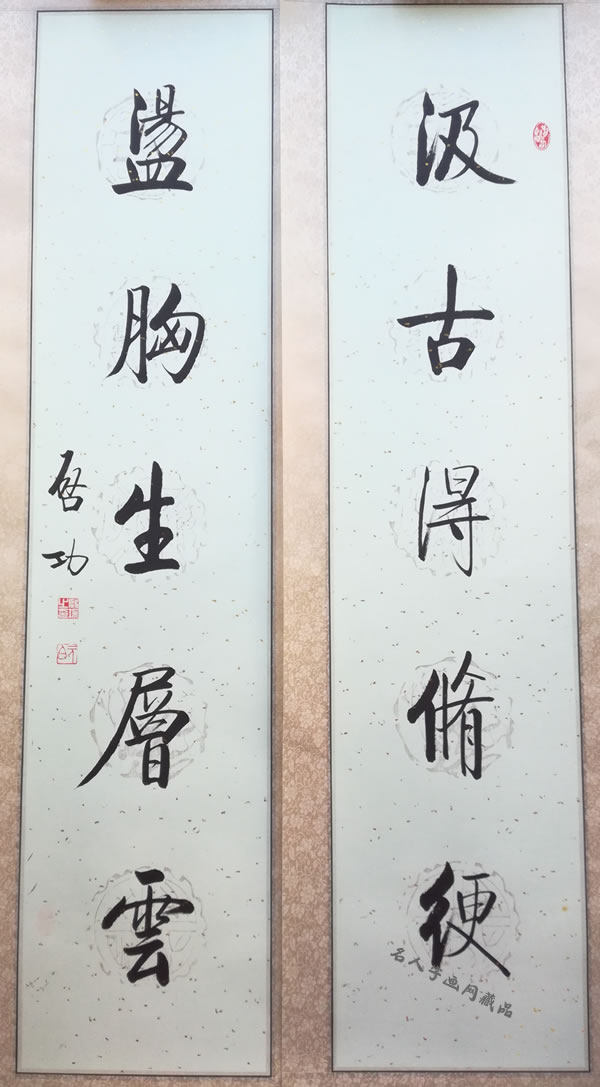 汲古得脩綆
盪胸生層雲
啓功
名人字画网藏品